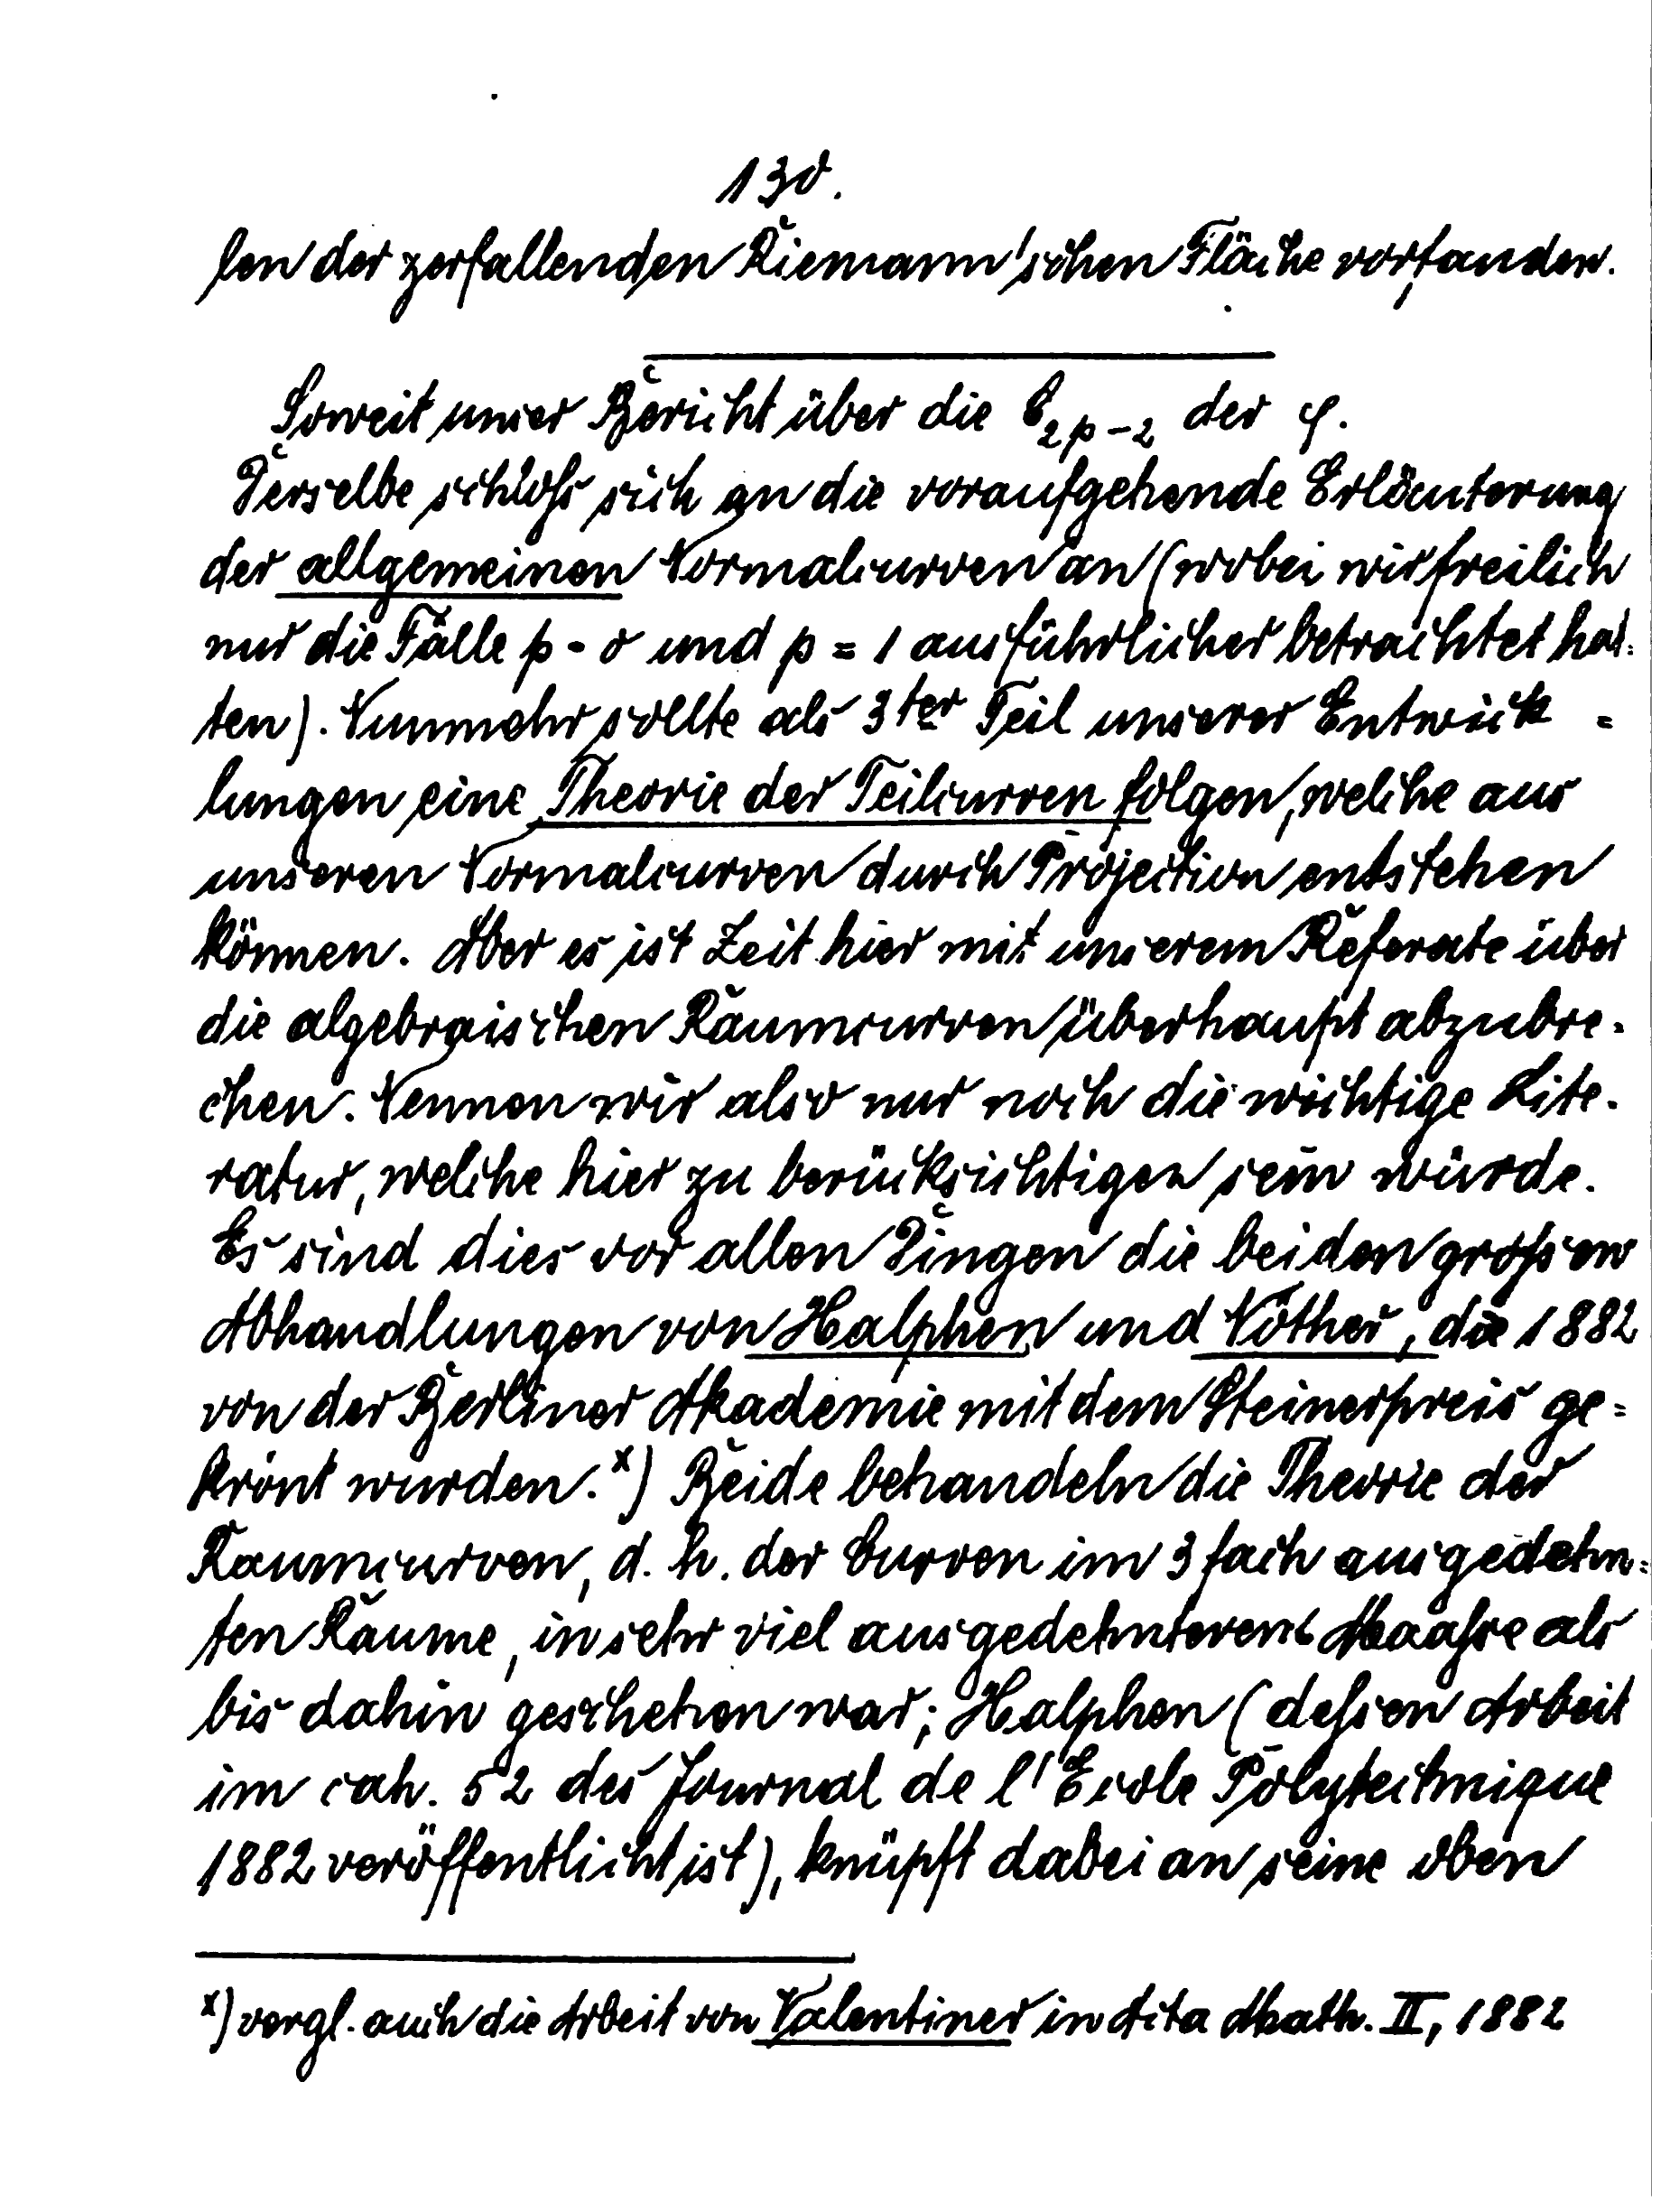 130.
len der zerfallenden Riemann'schen Fläche vorfanden.
Soweit unser Bericht über die C₂ₚ₋₂ der φ.
Derselbe schloß sich an die voraufgehende Erläuterung
der allgemeinen Normalcurven an (wobei wir freilich
nur die Fälle p = 0 und p = 1 ausführlicher betrachtet hat=
ten). Nunmehr sollte als 3ter Teil unserer Entwick=
lungen eine Theorie der Teilcurven folgen, welche aus
unseren Normalcurven durch Projection entstehen
können. Aber es ist Zeit hier mit unserem Referate über
die algebraischen Raumcurven überhaupt abzubre-
chen. Nennen wir also nur noch die wichtige Lite-
ratur, welche hier zu berücksichtigen sein würde.
Es sind dies vor allen Dingen die beiden großen
Abhandlungen von Halphen und Nöther, die 1882
von der Berliner Akademie mit dem Steinerpreis ge=
krönt wurden.x) Beide behandeln die Theorie der
Raumcurven, d. h. der Curven im 3 fach ausgedehn=
ten Raume, in sehr viel ausgedehnterem Maaße als
bis dahin geschehen war; Halphen (deßen Arbeit
im cah. 52 des Journal de l'Ecole Polytechnique
1882 veröffentlicht ist), knüpft dabei an seine oben
x) vergl. auch die Arbeit von Valentiner in Acta Math. II, 1882